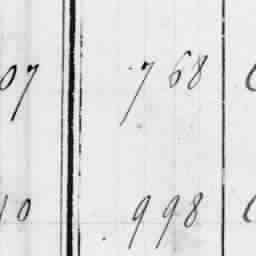 07 768
10 998